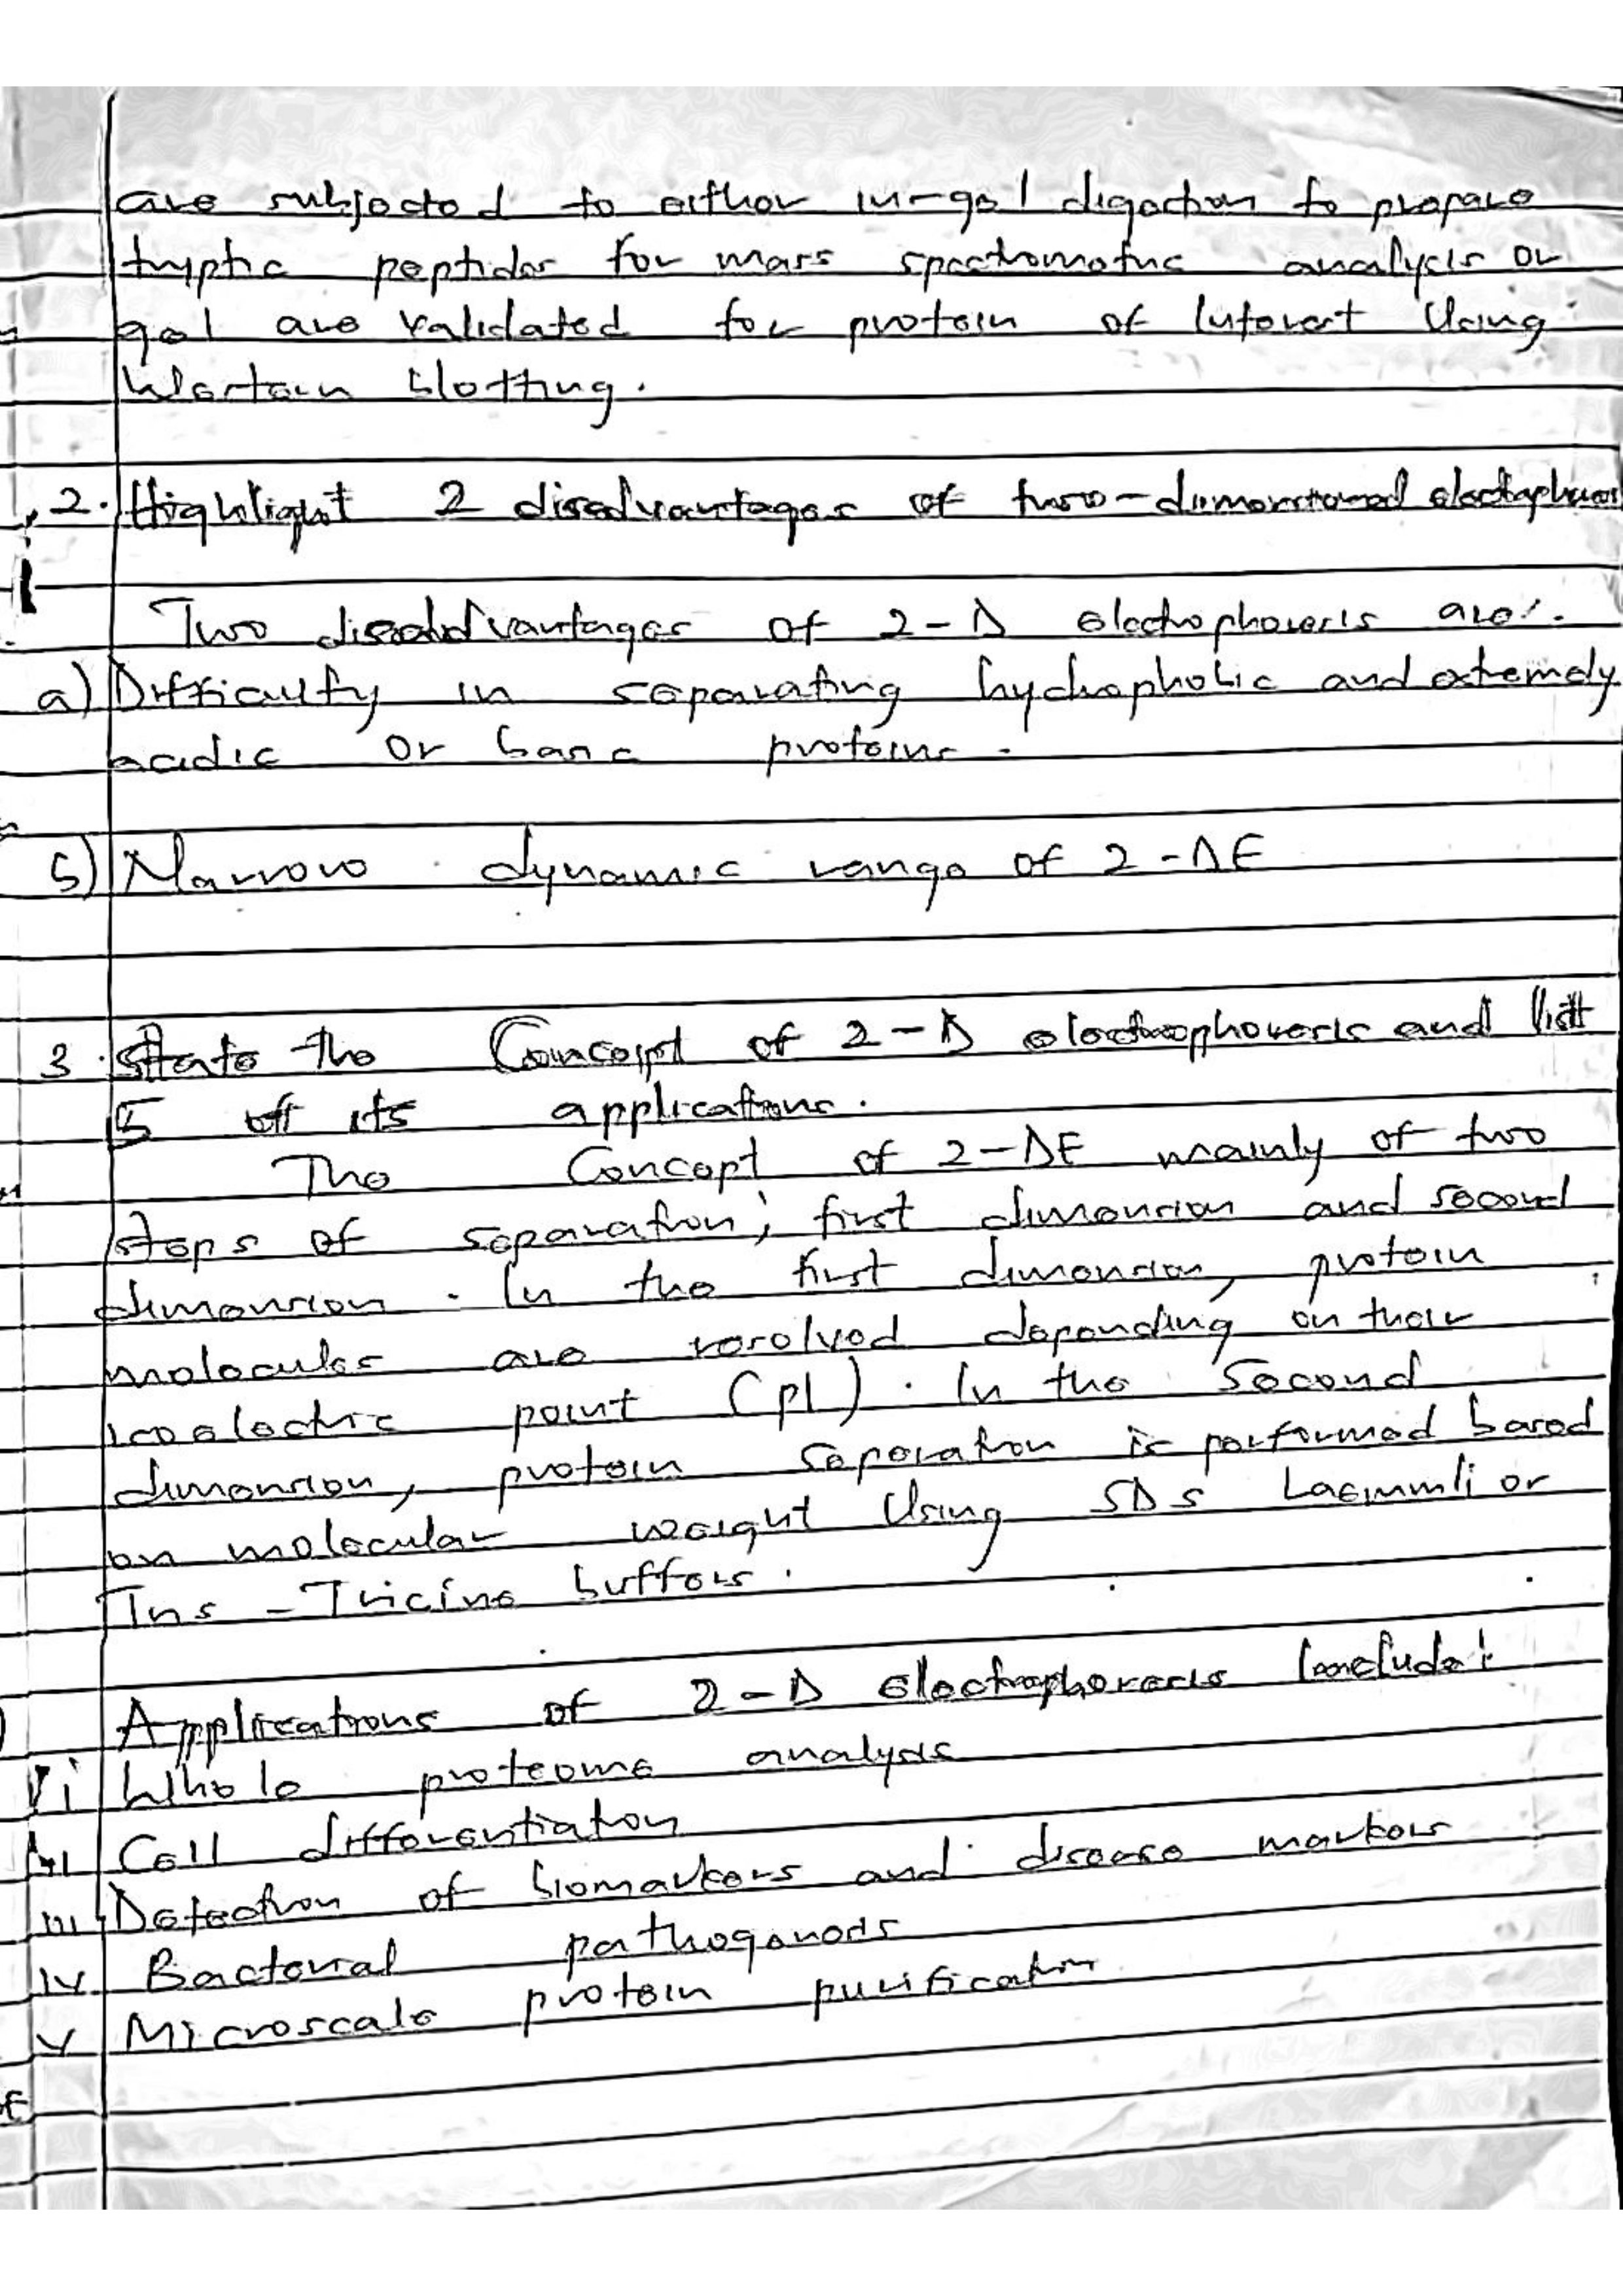 are subjected to either in-gel digestion to prepare
tryptic peptides for mass spectrometric analysis or
gel are validated for protein of Interest Using
Western blotting.
2. Highlight 2 disadvantages of two-dimensional electrophores
Two disadvantages of 2-D electrophoresis are:.
a) Difficulty in separating hydrophobic and extremely
acidic or basic proteins.
b) Narrow dynamic range of 2-DE
3. State the Concept of 2-D electrophoresis and list
5 of its applications.
The Concept of 2-DE mainly of two
steps of separation; first dimension and second
dimension. In the first dimension, protein
molecules are resolved depending on their
isoelectric point (pI). In the Second
dimension, protein separation is performed based
on molecular weight Using SDS Laemmli or
Tris - Tricine buffers.
Applications of 2-D electrophoresis include:
i Whole proteome analysis
ii Cell differentiation
iii Detection of biomarkers and disease markers
iv Bacterial pathogenods
v Microscale protein purification